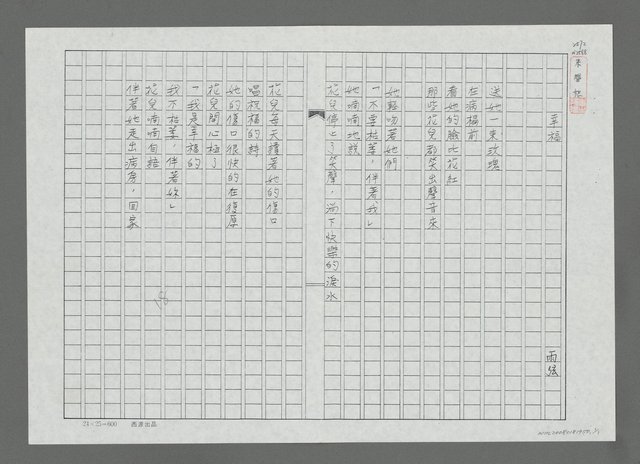 幸福
雨弦
送她一束玫瑰
在病榻前
看她的臉比花紅
那些花兒都笑出聲音來
她輕吻著她們
「不要枯萎,伴著我」
她喃喃地說
花兒停止了笑聲,淌下快樂的淚水
花兒每天讀著她的傷口
唱祝福的詩
她的傷口很快的在復原
花兒開心極了
「我是幸福的
我不枯萎,伴著妳」
花兒喃喃自語
伴著她走出病房,回家
18
24×25=600